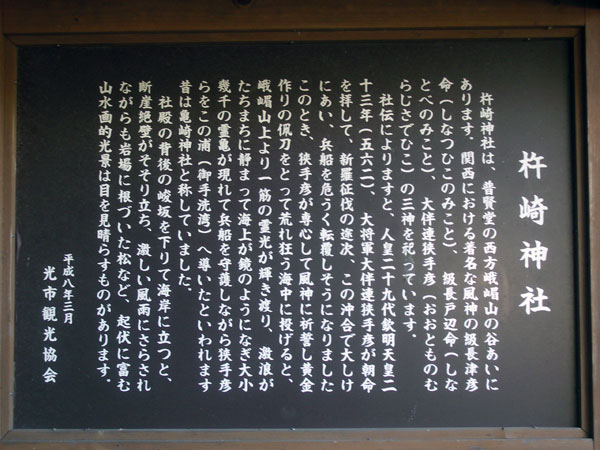 杵崎神社
杵崎神社は、普賢堂の西方峨嵋山の谷あいに
あります。関西における著名な風神の級長津彦
命（しなつひこのみこと）、級長戸辺命（しな
とべのみこと）、大伴連狭手彦（おおとものむ
らじさでひこ）の三神を祀っています。
社伝によりますと、人皇二十九代欽明天皇二
十三年（五六二）、大将軍大伴連狭手彦が朝命
を拝して、新羅征伐の途次、この沖合で大しけ
にあい、兵船を危うく転覆しそうになりました
このとき、狭手彦が専心して風神に祈誓し黄金
作りの佩刀をとって荒れ狂う海中に投げると、
峨嵋山上より一筋の霊光が輝き渡り、激浪が
たちまちに静まって海上が鏡のようになぎ大小
幾千の霊亀が現れて兵船を守護しながら狭手彦
らをこの浦（御手洗湾）へ導いたといわれます
昔は亀崎神社と称していました。
社殿の背後の峻坂を下りて海岸に立つと、
断崖絶壁がそそり立ち、激しい風雨にさらされ
ながらも岩場に根づいた松など、起伏に富む
山水画的光景は目を見晴らすものがあります。
平成八年三月
光市観光協会